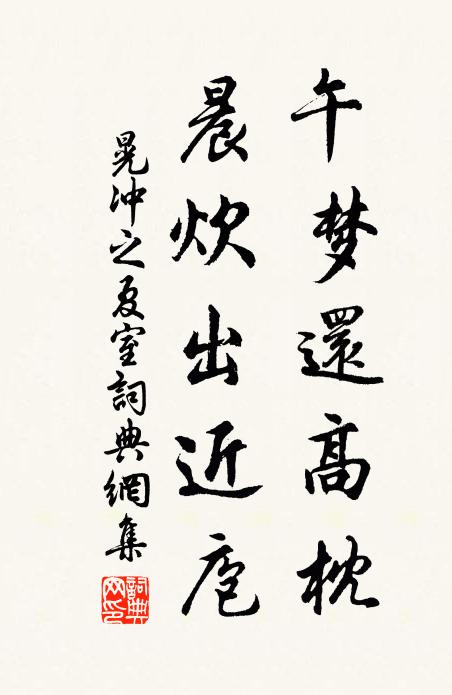 午梦還高枕
晨炊出近庖
晁冲之夏室詞典網集
詞典網印